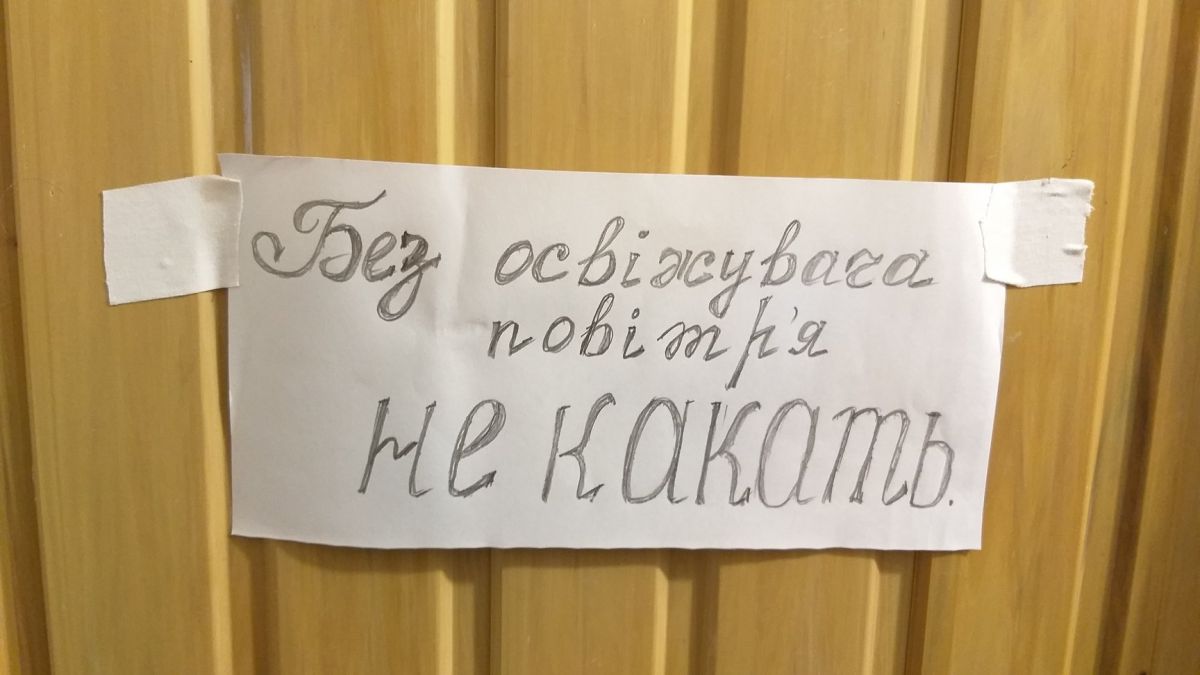 Без освіжувача
повітр'я
не какать.